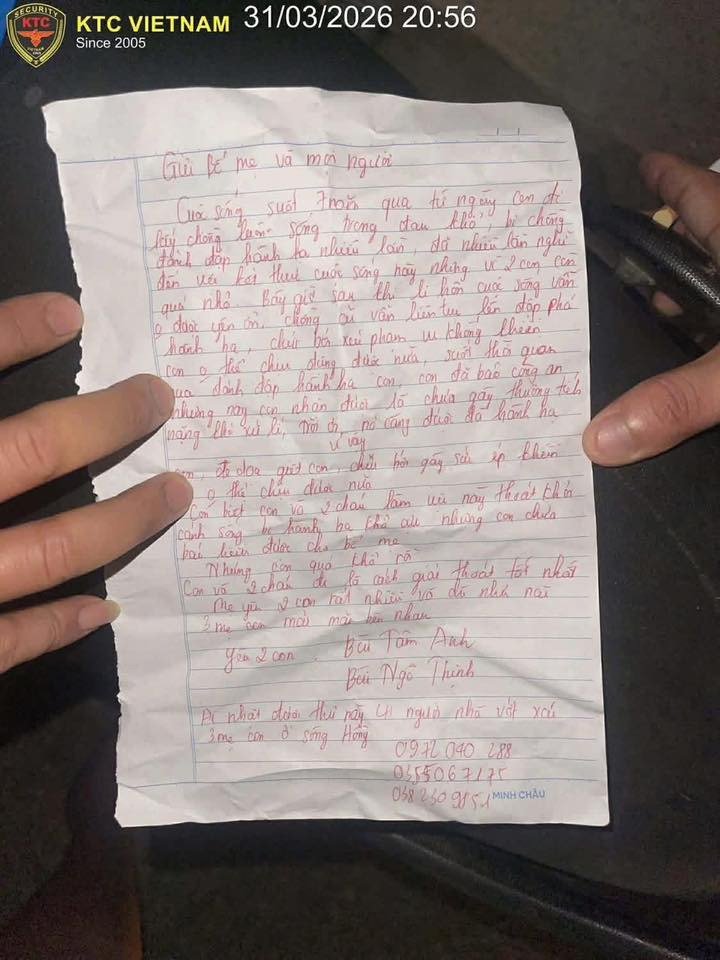 KTC VIETNAM
Since 2005
31/03/2026 20:56
SECURITY
KTC
Gửi bố mẹ và mọi người
Cuộc sống suốt 7 năm qua từ ngày con đi
lấy chồng luôn sống trong đau khổ, bị chồng
đánh đập hành hạ nhiều lần đã nhiều lần nghĩ
đến với kết thúc cuộc sống này nhưng vì 2 con còn
quá nhỏ. Bây giờ sau khi li hôn cuộc sống vẫn
o được yên ổn, chồng cũ vẫn liên tục đến đập phá
hành hạ, chửi bới xúc phạm khiến
con o thể chịu đựng được nữa, suốt thời gian
qua đánh đập hành hạ con, con đã báo công an
nhưng nay con nhận được là chưa gây thương tích
nặng khó xử lí, nó càng được đà hành hạ
vì vậy
con, đe doạ giết con, chửi bới gây sức ép khiến
o thể chịu được nữa
Con biết con và 2 cháu làm này thoát khỏi
cảnh sống bị hành hạ nhưng con chưa
báo hiếu được cho bố mẹ
Nhưng con quá khổ rồi
Con và 2 cháu đi là cách giải thoát tốt nhất
Mẹ yêu 2 con rất nhiều và
3 mẹ con mãi mãi bên nhau
Yêu 2 con. Bùi Tâm Anh
Bùi Ngô Thịnh
Ai nhặt được thư này người nhà vớt xác
3 mẹ con ở sông Hồng
0972 040 288
0355067175
MINH CHÂU